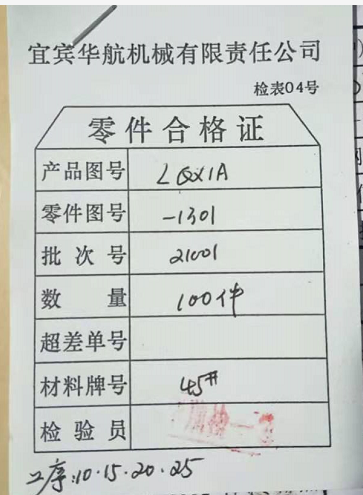 宜宾华航机械有限责任公司
检表04号
零件合格证
产品图号 LQX1A
零件图号 -1301
批次号 21001
数量 100件
超差单号
材料牌号 45#
检验员
工序:10·15·20·25